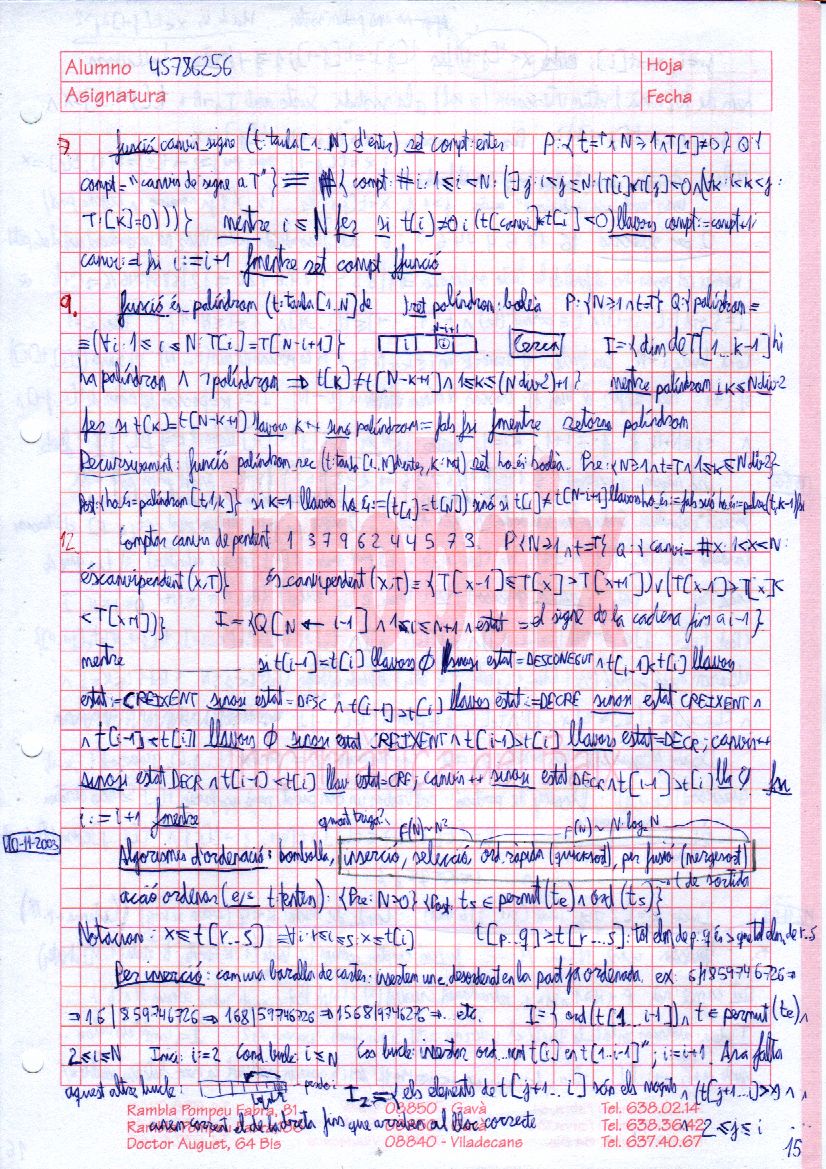 Alumno 45786256 Hoja
Asignatura Fecha
7. funció canvis_signe (t: taula [1...N] d'enter) ret compt: enter P:{t=T ∧ N≥1 ∧ T[1]≠0} Q:{
compt = "canvis de signe a T"} ≡ {compt: # i: 1≤i<N: (∃ j: i<j≤N: (T[i]*T[j]<0 ∧ (∀k: i<k<j:
T[K]=0)))} mentre i≤N fer si t[i]≠0 i (t[canvi]*t[i]<0) llavors compt:=compt+1;
canvi:=i fsi i:=i+1 fmentre ret compt ffunció
9. funció és_palíndrom (t: taula [1...N] de ) ret palíndrom: booleà P:{N≥1 ∧ t=T} Q:{palíndrom ≡
≡(∀i: 1≤i≤N: T[i]=T[N-i+1]} i N-i+1 I={dins de T[1...k-1] hi
ha palíndrom ∧ ¬palíndrom ⇒ t[k]≠t[N-k+1] ∧ 1≤k≤(N div 2)+1} mentre palíndrom i K≤N div 2
fer si t(k)=t[N-k+1] llavors k++ sinó palíndrom:=fals fsi fmentre retorna palíndrom
Recursivament: funció palíndrom_rec (t: taula [1..N] d'enter, K: nat) ret ho_és: booleà. Pre:{N≥1 ∧ t=T ∧ 1≤k≤N div 2}
Post:{ho_és=palíndrom[t,1,k]} si k=1 llavors ho_és:=(t[1]=t[N]) sinó si t[i]≠t[N-i+1] llavors ho_és:=fals sinó ho_és:=palrec(t,k-1) fsi
12. Comptar canvis de pendent 1 3 7 9 6 2 4 4 5 7 3. P{N≥1 ∧ t=T} Q:{canvis=#x: 1<x<N:
éscanvipendent(x,T)} és_canvipendent(x,T)≡{T[x-1]≤T[x]>T[x+1]) ∨ (T[x-1]>T[x]<
<T[x+1])} I={Q[N ← i-1] ∧ 1≤i≤n+1 ∧ estat = el signe de la cadena fins a i-1}
mentre si t[i-1]=t[i] llavors ∅ sinosi estat=DESCONEGUT ∧ t[i-1]<t[i] llavors
estat:=CREIXENT sinosi estat=DESC ∧ t[i-1]>t[i] llavors estat:=DECRE sinosi estat CREIXENT ∧
∧ t[i-1]<t[i] llavors ∅ sinosi estat CREIXENT ∧ t[i-1]>t[i] llavors estat=DECR; canvis++
sinosi estat DECR ∧ t[i-1]<t[i] llav estat=CRE; canvis++ sinosi estat DECR ∧ t[i-1]>t[i] lla ∅ fsi
i:=i+1 fmentre
quant triga? F(N)~N² F(N)~N·log₂N
10-11-2003 Algorismes d'ordenació: bombolla, inserció, selecció, ord. ràpida (quicksort), per fusió (mergesort)
acció ordenar (e/s t: tenters): {Pre: N>0} {Post: ts ∈ permut(te) ∧ ord(ts)} t de sortida
Notacions: x≤t[r...s] ≡ ∀i: r≤i≤s: x≤t[i] t[p...q]≥t[r...s]: tot elem. de p..q és > que tot elm. de r..s
Per inserció: com una baralla de cartes: insertem un e. desordenat en la part ja ordenada. ex: 6|1859746726 ⇒
⇒ 16|859746726 ⇒ 168|59746726 ⇒ 1568|9746726 ⇒ ... etc. I={ord(t[1...i-1]) ∧ t ∈ permut(te) ∧
2≤i≤N Inici: i=2 Cond. bucle: i≤N Cos bucle: "insertar ord. t[i] en t[1..i-1]"; i:=i+1. Ara falta
aquest altre bucle: I₂={els elements de t[j+1...i] són els ∧ (t[j+1...i]>x) ∧
anem corrent el de la dreta fins que arribem al lloc correcte ∧ 2≤j≤i ...
Rambla Pompeu Fabra, 81 08850 - Gavà Tel. 638.02.14
Tel. 638.36.42
Doctor Auguet, 64 Bis 08840 - Viladecans Tel. 637.40.67
15